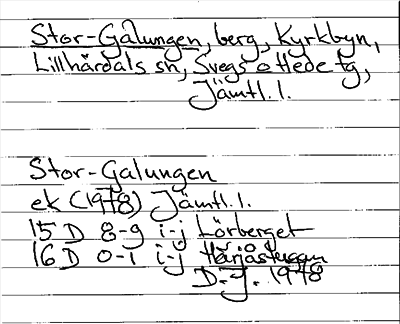 Stor-Galungen, berg, Kyrkbyn,
Lillhärdals sn, Svegs o Hede tg,
Jämtl. l.
Stor-Galungen
ek (1978) Jämtl. l.
15 D 8-9 i-j Lörberget
16 D 0-1 i-j
D.-J. 1978